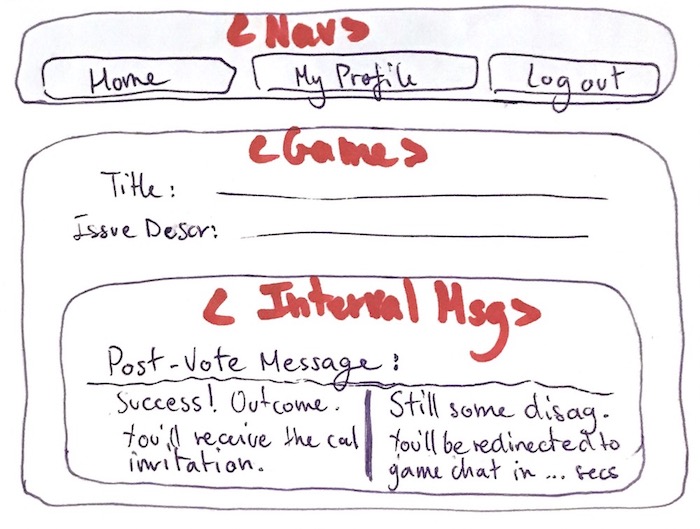 <Nav>
Home My Profile Log out
<Game>
Title:
Issue Descr:
<Interval Msg>
Post-Vote Message:
Success! Outcome.
You'll receive the cal
invitation.
Still some disag.
You'll be redirected to
game chat in ... secs